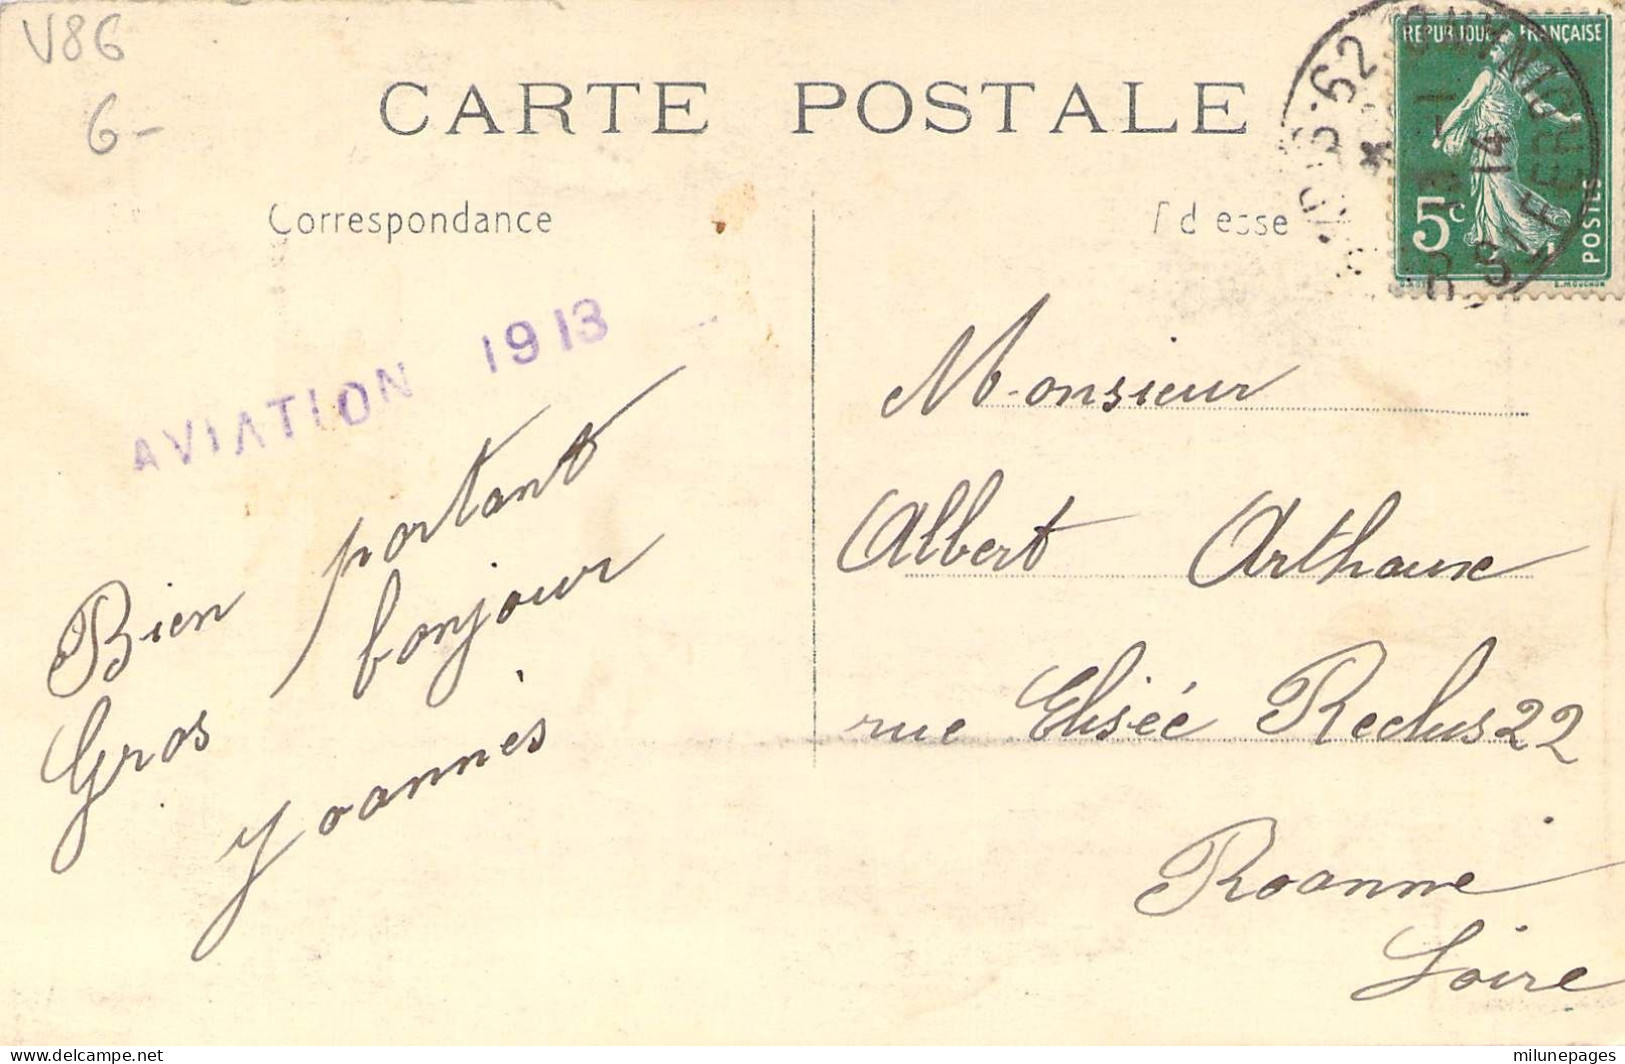 V86
6-
CARTE POSTALE
Correspondance
REPUBLIQUE FRANÇAISE
5c
POSTES
AVIATION 1913
Bien portant
Gros bonjour
Yoannès
Monsieur
Albert Arthaux
rue Elisée Reclus 22
Roanne
Loire
delcampe.net
milunepages